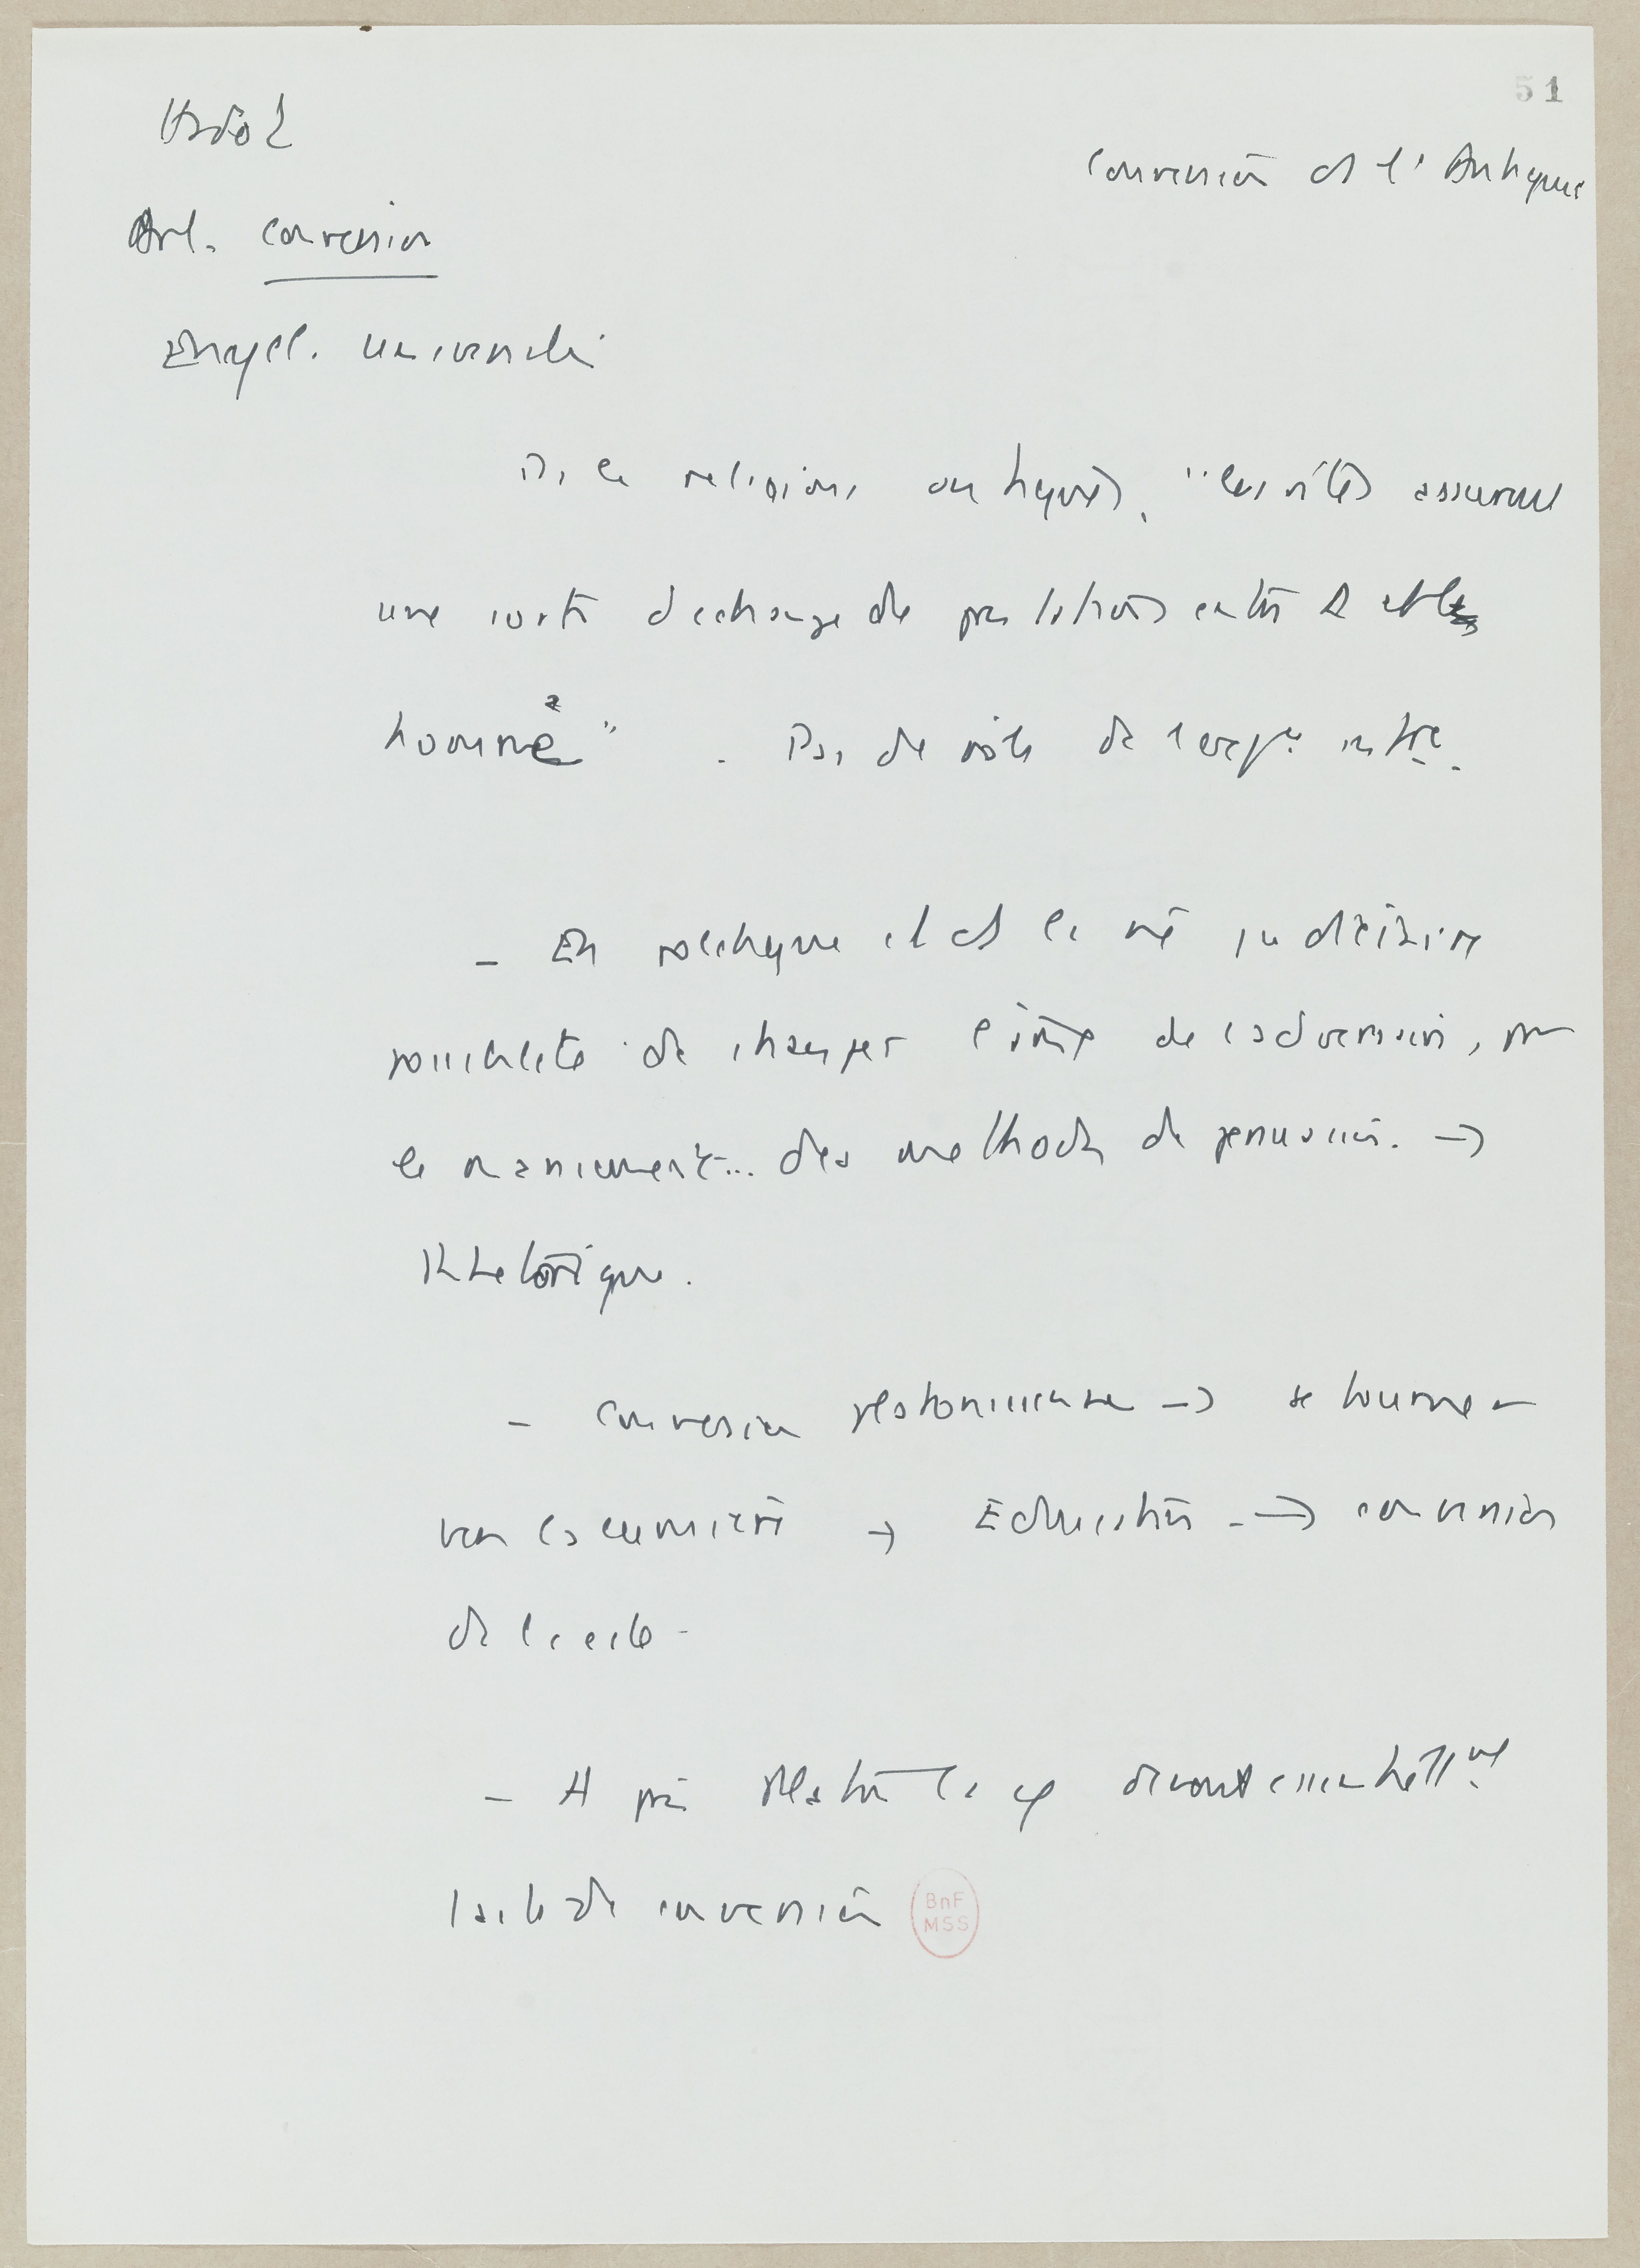 51
Hadot
Conversion ds l'Antiquité
Art. conversion
Encycl. universalis
Ds les religions antiques, "les rites assurent
une sorte d'echange de prestations entre D et les
hommes". Pas de role de l'exp. intre.
- En politique et ds la vie judiciaire
possibilité de changer l'âme de l'adversaire, par
le maniement... des methodes de persuasion. →
Rhetorique.
- Conversion platonicienne → se tourner
vers la lumière → Education → conversion
de la cité.
- A partir Platon la φ devient essentiellt
de conversion
BnF
MSS